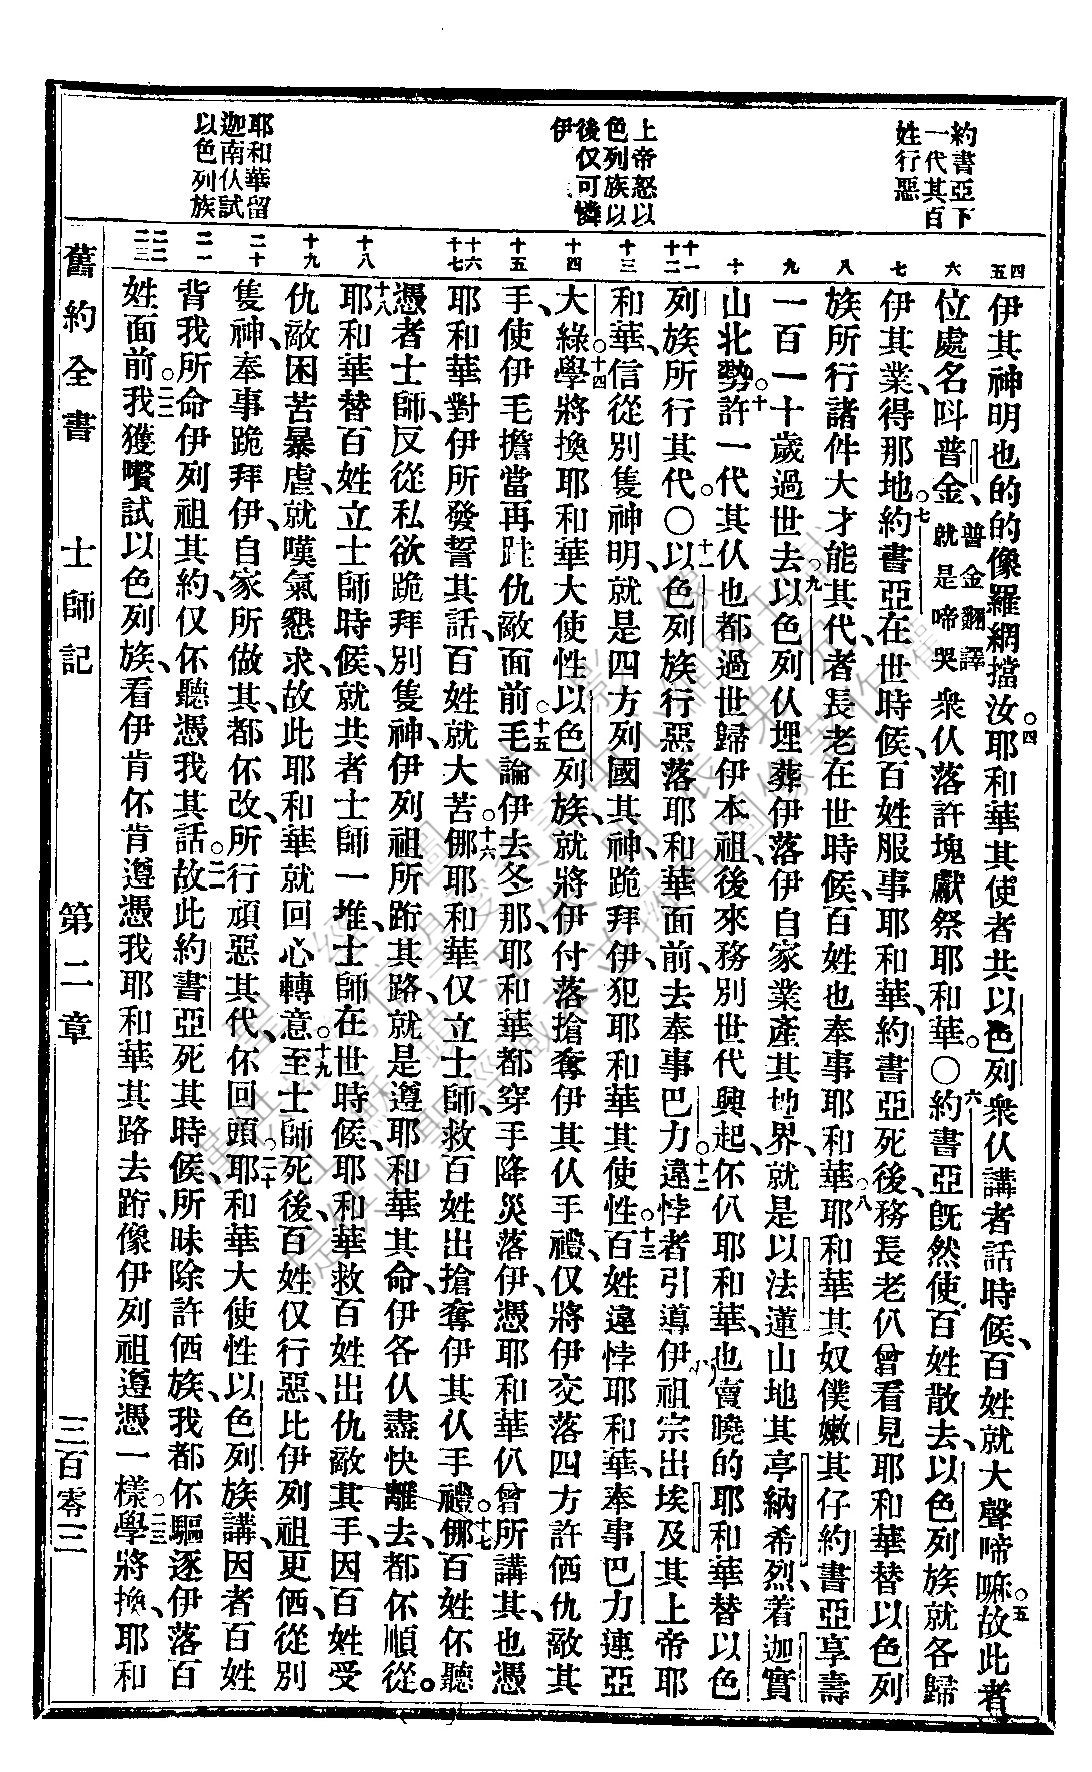 約書亞下
一代其百
姓行惡
上帝怒以
色列族以
後仅可憐
伊
耶和華留
迦南仫試
以色列族
四 五 六 七 八 九 十 十一 十二 十三 十四 十五 十六 十七 十八 十九 二十 二一 二二 二三
伊其神明也的的像羅網擋汝四耶和華其使者共以色列衆仫講者話時候百姓就大聲啼嘛五故此者
位處名呌普金普金翻譯就是啼哭衆仫落許塊獻祭耶和華○六約書亞旣然使百姓散去以色列族就各歸
伊其業得那地七約書亞在世時候百姓服事耶和華約書亞死後務長老仈曾看見耶和華替以色列
族所行諸件大才能其代者長老在世時候百姓也奉事耶和華八耶和華其奴僕嫩其仔約書亞享壽
一百一十歲過世去九以色列仫埋葬伊落伊自家業產其地界就是以法蓮山地其亭納希烈着迦實
山北勢十許一代其仫也都過世歸伊本祖後來務別世代興起伓仈耶和華也賣曉的耶和華替以色
列族所行其代○十一以色列族行惡落耶和華面前去奉事巴力十二違悖者引導伊祖宗出埃及其上帝耶
和華信從別隻神明就是四方列國其神跪拜伊犯耶和華其使性十三百姓違悖耶和華奉事巴力連亞
大綠學十四將換耶和華大使性以色列族就將伊付落搶奪伊其仫手禮仅將伊交落四方許伵仇敵其
手使伊毛擔當再跓仇敵面前十五毛論伊去冬那耶和華都穿手降災落伊憑耶和華仈曾所講其也憑
耶和華對伊所發誓其話百姓就大苦十六㑚耶和華仅立士師救百姓出搶奪伊其仫手禮十七㑚百姓伓聽
憑者士師反從私欲跪拜別隻神伊列祖所跨其路就是遵耶和華其命伊各仫盡快離去都伓順從
十八耶和華替百姓立士師時候就共者士師一堆士師在世時候耶和華救百姓出仇敵其手因百姓受
仇敵困苦暴虐就嘆氣懇求故此耶和華就回心轉意十九至士師死後百姓仅行惡比伊列祖更伵從別
隻神奉事跪拜伊自家所做其都伓改所行頑惡其代伓回頭二十耶和華大使性以色列族講因者百姓
背我所命伊列祖其約仅伓聽憑我其話二一故此約書亞死其時候所昧除許伵族我都伓驅逐伊落百
姓面前二二我獲嚽試以色列族看伊肯伓肯遵憑我耶和華其路去跨像伊列祖遵憑一樣二三學將換耶和
舊約全書 士師記 第二章 三百零三